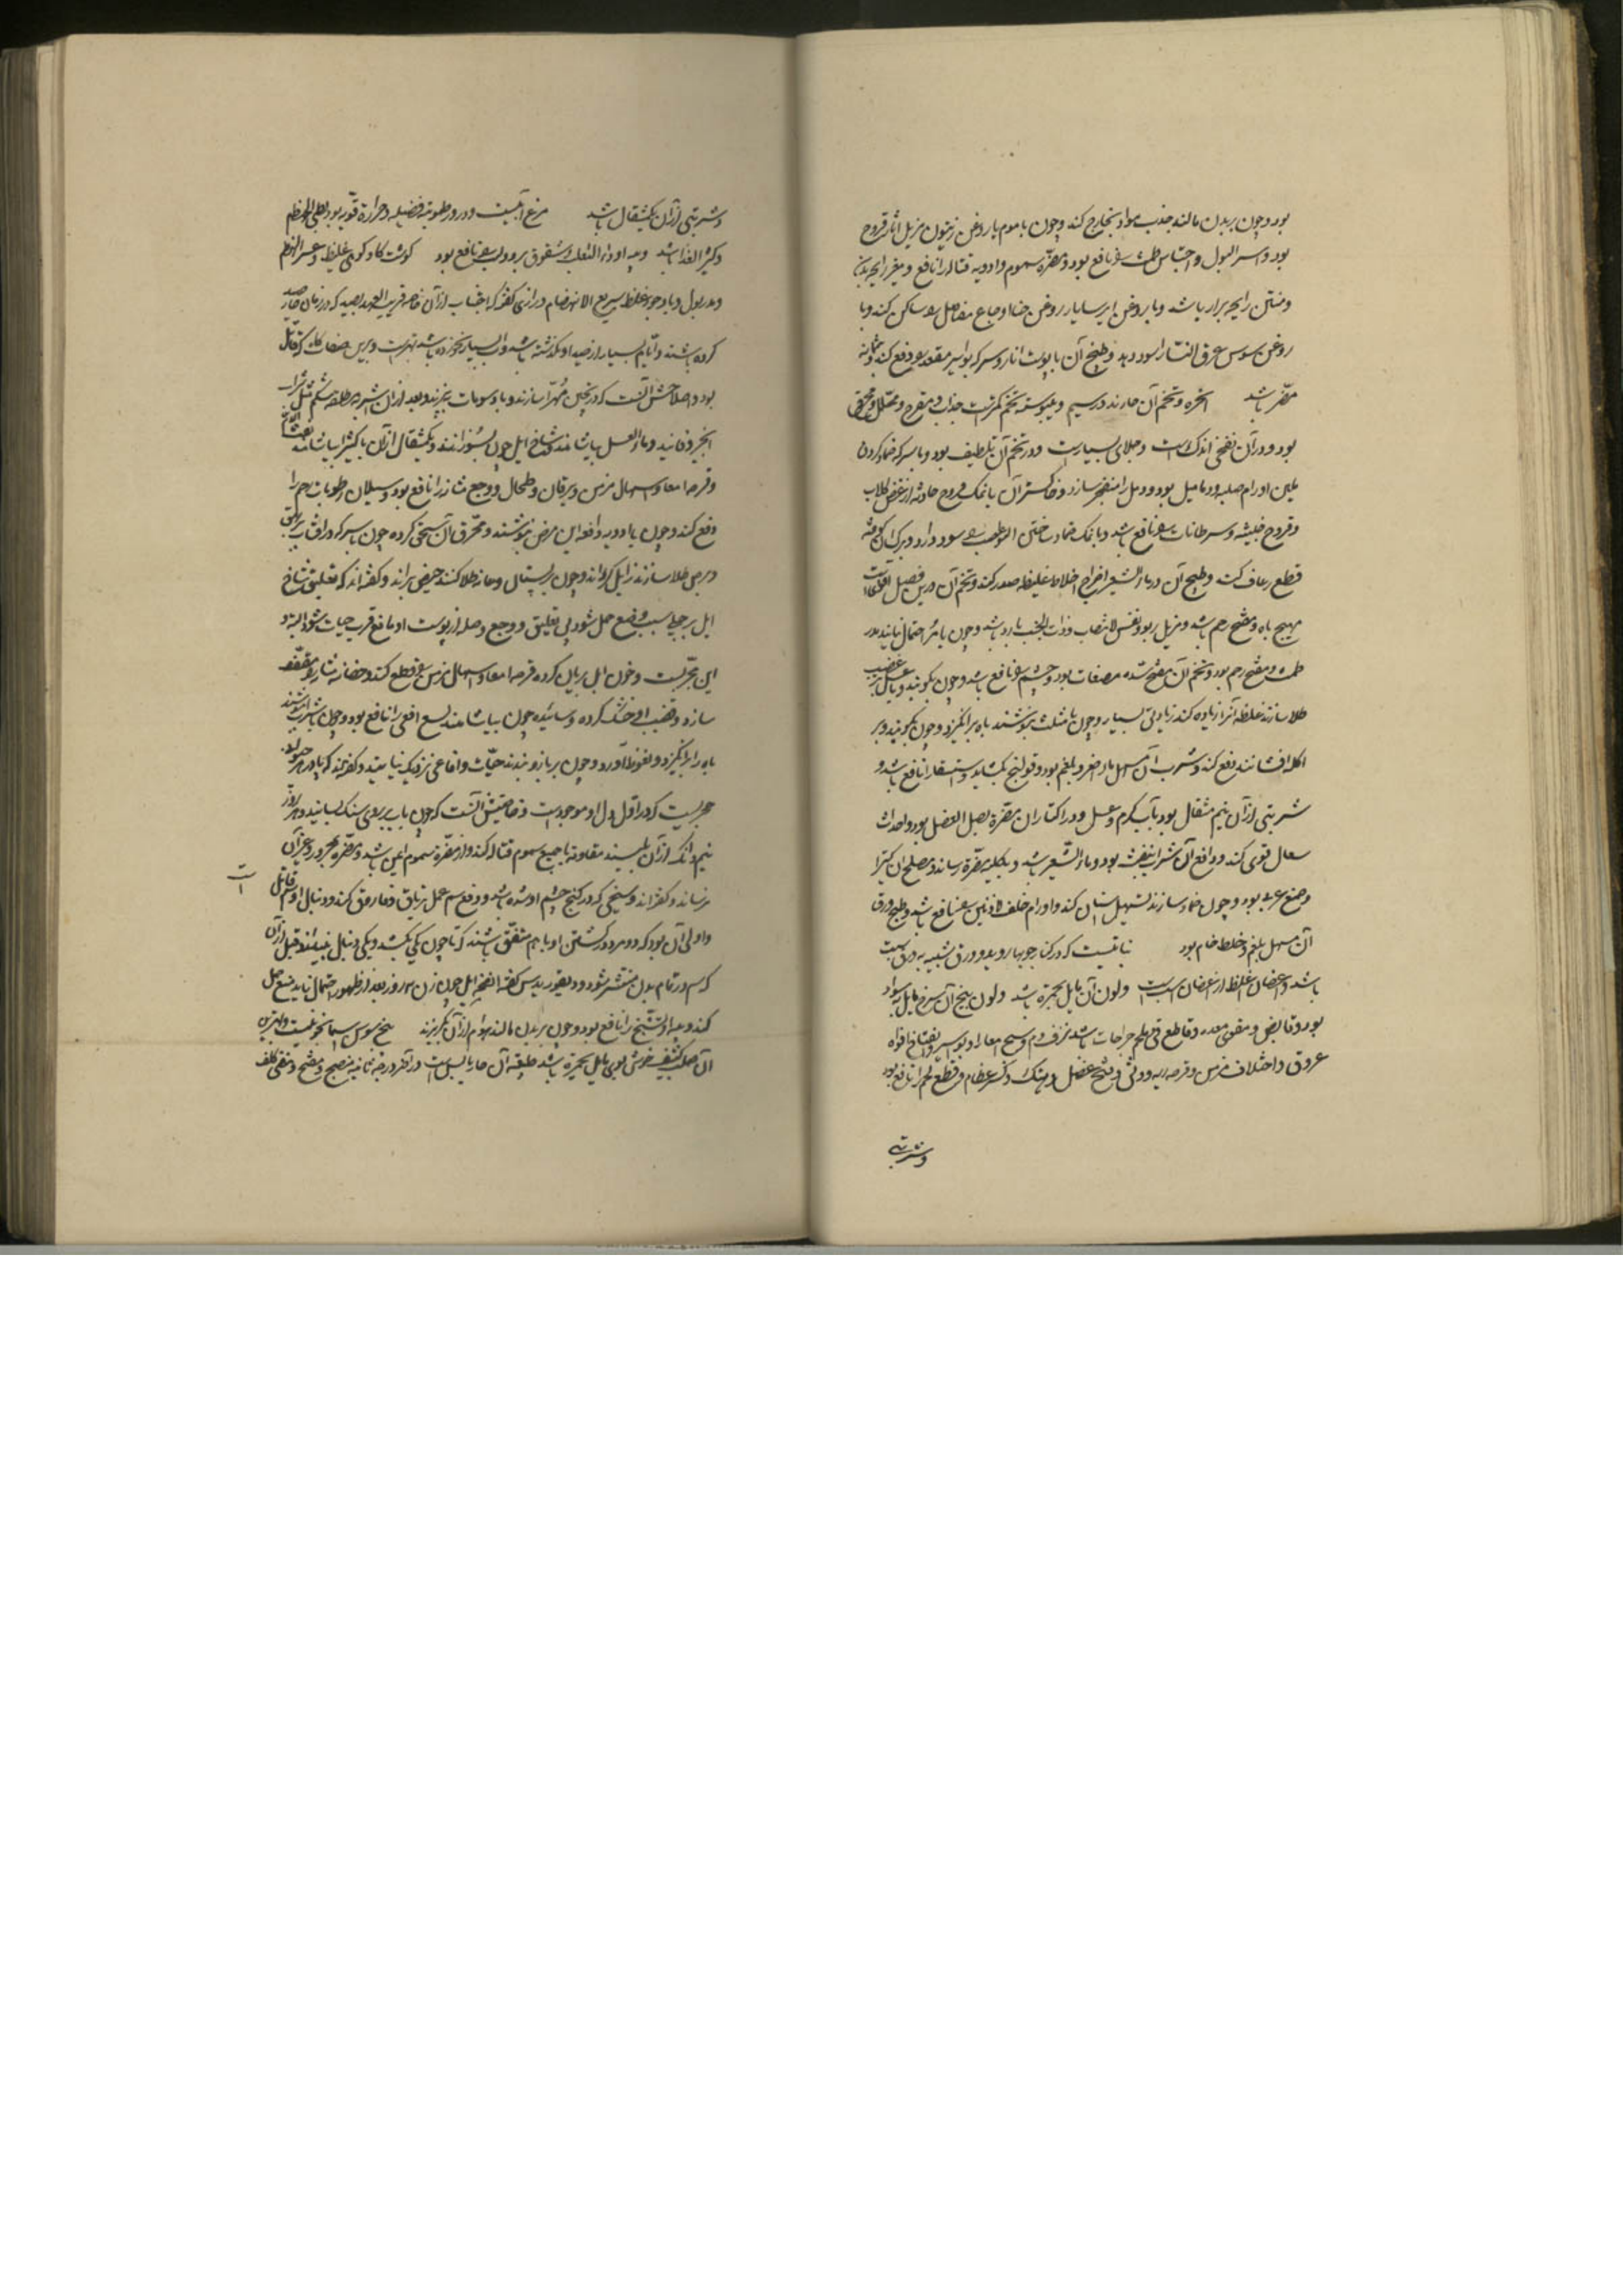 بود و چون بر بدن مالند جذب مواد بخارج کند و چون با موم یا روغن زیتون مزیل اثار قروح
بود و اسر البول و احتباس طمث را نافع بود و مضرة سموم و ادویه قتاله را نافع و
و منتن رایحه براز باشد و با روغن ایرسا یا روغن حنا اوجاع مفاصل را ساکن کند و با
روغن سوسن عرق النسا را سود دهد و طبیخ آن با پوست انار و سرکه بواسیر مقعد را دفع کند و مثانه
مضر باشد انجره و تخم آن حارند در سیم و یبوسته تخم کمترست جذاب و مقرح و محلل و
بود و در آن نفخی اندک است و جلای بسیارست و در تخم آن تلطیف بود و با سرکه ضماد کردن
ملین اورام صلبه و دمامیل بود و دمل را منفجر سازد و خاکستر آن با نمک قروح حادثه از عض کلاب
و قروح خبیثه و سرطانات را نافع باشد و با نمک ضماد ساختن سود دارد و برک آن کوفته
قطع رعاف کند و طبیخ آن در ماء الشعیر اخراج اخلاط غلیظه صدر کند و تخم آن درین فصیل اقوی است
مهیج باه و مفتح رحم باشد و مزیل ربو و نفس الانتصاب و ذات الجنب بارد باشد و چون با مر احتمال نمایند مدر
طمث و مفتح رحم بود و تخم آن
طلا سازند غلظه آنرا زیاده کند زیادتی بسیار و چون با مثلث بنوشند باه برانگیزد و چون بکوبند و بر
اکله افشانند دفع کند و شرب آن مسهل بلغم بود و قولنج بکشاید و استسقا را نافع باشد و
شربتی از آن نیم مثقال بود بآب گرم و عسل و در اکثار آن مضرة بصل العنصل بود و احداث
سعال قوی کند و دافع آن شراب بنفشه بود و ماء الشعیر باشد و بکلیه مضرة رساند و مصلح آن کتیرا
و صمغ عربی بود و چون ضماد سازند تسهیل اسنان کند و اورام خلف الاذنین را نافع باشد و طبیخ ورق
آن مسهل بلغم و خلط خام بود نباتیست که در کنار جویها روید و ورق شبیه به ورق
باشد و اغصان غلیظ از اغصان است و لون آن مایل بحمرة باشد و لون بیخ آن سرخ مایل بسواد
بود و قابض و مقوی معده و قاطع قی و ملحم جراحات باشد نزف دم و سحج امعا و بواسیر و انفتاح افواه
عروق و اختلاف مزمن و قرحه ریه و وثی و فسخ عضل و هتک و کسر عظام و قطع لحم را نافع بود
و شربتی
و شربتی از آن یکمثقال باشد مرغ آبیست و در و رطوبته فضیله و حرارة قویه بود بطی الهضم
و کثیر الغذا باشد و پیه او داء الثعلب و شقوق برودت را نافع بود گوشت گاو کوهی غلیظ و عسر الهضم
و مدر بول و با وجود غلظ سریع الانهضام و رازی گفته که اجتناب از آن خاصه قریب العهد بصید که در زمان حار صید
کرده باشند و ایام بسیار از صید او نگذشته باشد و آب بسیار نخورده باشد بهترست و برین صفات گاه که قتال
بود و اصلاحش آنست که در پختن مهرا سازند و با دسومات بپزند و بعد از آن اشربه مطلقه شکم مثل شراب
انجیر و فانید و ماء العسل بیاشامند و شاخ ایل چون بسوزانند و یکمثقال از آن با کتیرا بیاشامند
و قرحه امعا و اسهال مزمن و یرقان و طحال و وجع مثانه را نافع بود و سیلان رطوبات رحم را
دفع کند و چون با ادویه دافعه این مرض بنوشند و محرق آن سحق کرده چون با سرکه در آفتاب بر بهق
و برص طلا سازند زایل گرداند و چون بر پستان و عانه طلا کنند حیض براند و گفته‌اند که تعلیق شاخ
ایل بر حبلی سبب وضع حمل شود بی تعلیق و وجع و صله از پوست او مانع قرب حیات شود البته و
این مجربست و خون ایل بریان کرده قرحه امعا و اسهال مزمن را قطع کند
سازد و قضیب او خشک کرده و سائیده چون بیاشامند لسع افعی را نافع بود و چون با شراب بنوشند
باه را برانگیزد و نعوظ آورد و چون بر بازو بندند حیات و افاعی نزدیک نیایند و گفته‌اند که پادزهر حیوانی
حجریست که در اقول دل او موجودست و خاصیتش آنست که چون با آب بر روی سنگ بسایند و هر روز
نیم دانک از آن بلیسند مقاومة با جمیع سموم قتاله کند و از مضرة سموم ایمن باشد و مضرة بمحرور و غیر آن
نرساند و گفته‌اند وسخی که در کنج چشم او شده باشد در دفع سم عمل تریاق فاروق کند و دنبال او سم قاتل
و اولی آن بود که دو مرد در کشتن او با هم متفق باشند که تا چون یکی بکشد و یکی دنبال بیندازد قبل از آن
که سم در تمام بدن منتشر شود و دیسقوریدس گفته انفحه ایل چون زن سه روز بعد از ظهور احتمال نماید منع حمل
کند و پیه او تشنج را نافع بود و چون بر بدن مالند هوام از آن بگریزند بیخ سوسن اسمانجونیست و بهترین
آن صلب کثیف خوش بوی مایل بحمرة باشد طبیعة آن حار یابس است در آخر درجه ثانیه منضج و مفتح و منقی کلف